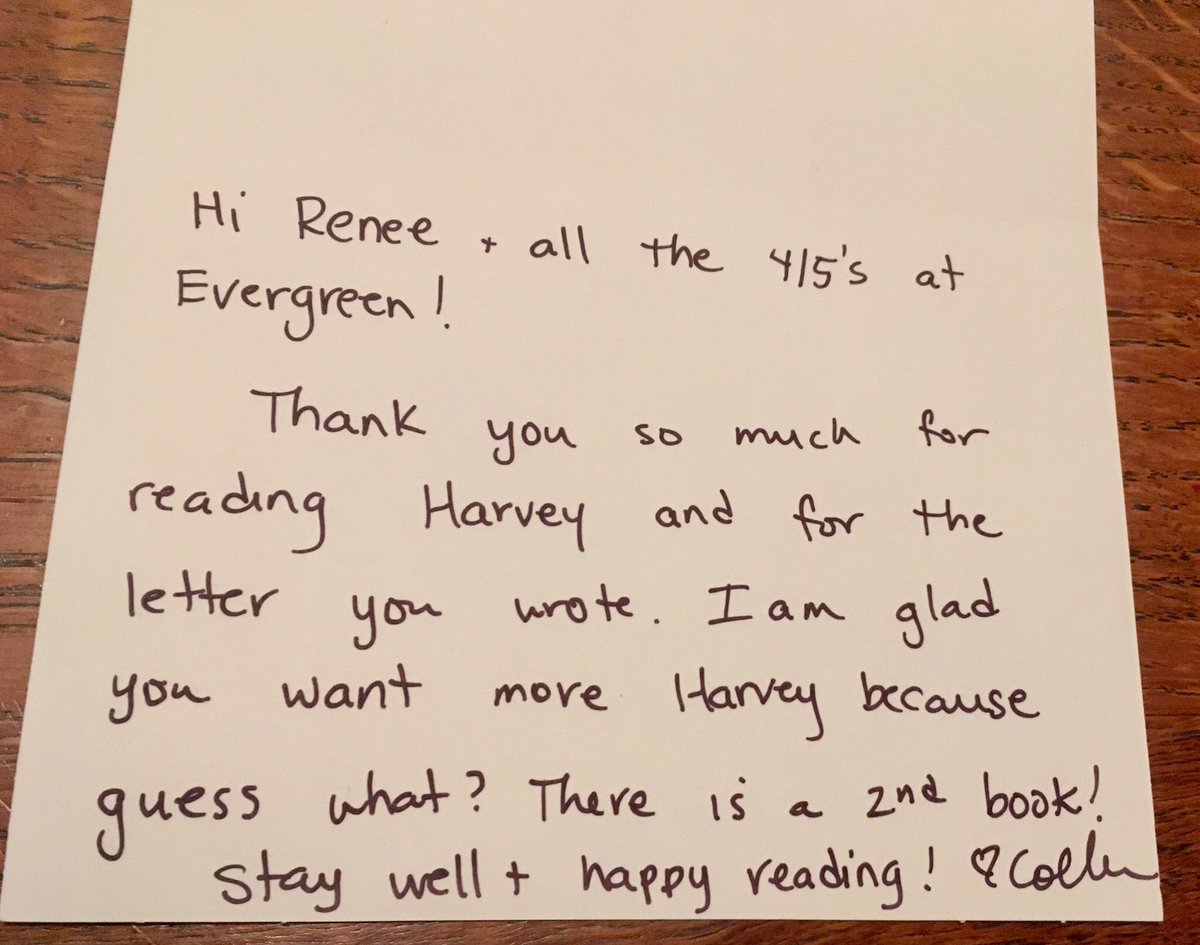 Hi Renee + all the 4/5's at
Evergreen!
Thank you so much for
reading Harvey and for the
letter you wrote. I am glad
you want more Harvey because
guess what? There is a 2nd book!
Stay well + happy reading! ♡